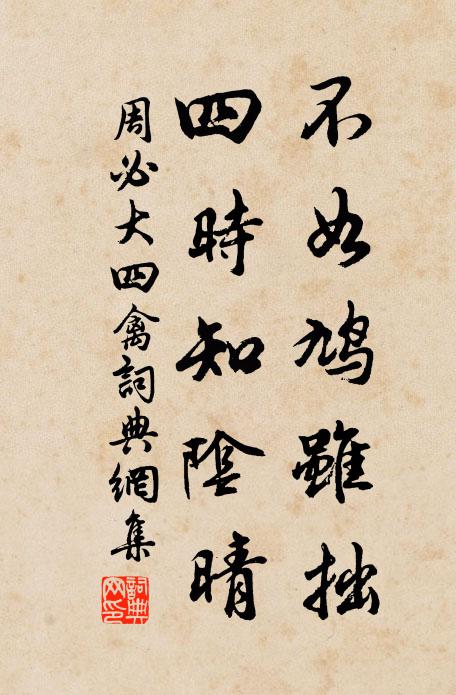 不如鳩雖拙
四時知陰晴
周必大四禽詞典網集
詞典網印